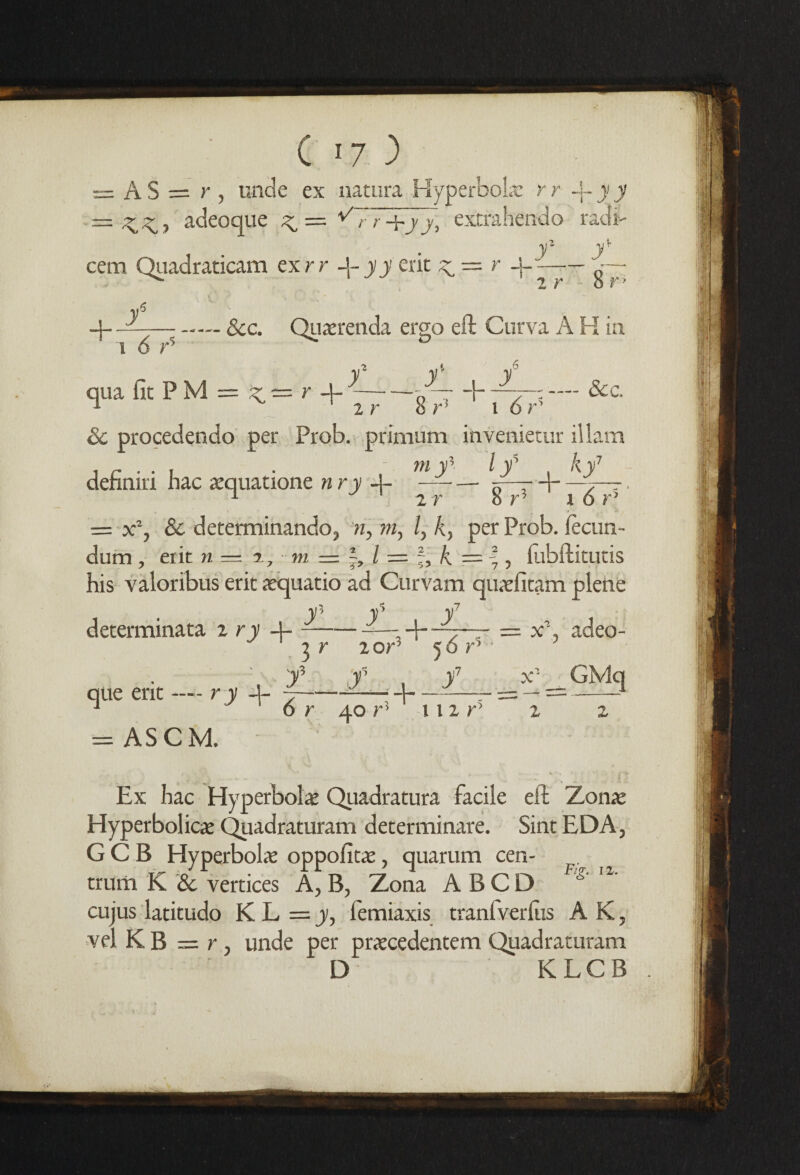 ( 17 )
= A S = r , unde ex natura Hyperbolæ r r + y y
= z z , adeoque z = √ r r + y y, extrahendo radi-
cem Quadraticam ex r r + y y erit z = r + y²/2 r — y⁴/8 r³
+ y⁶/1 6 r⁵ ---- &c. Quærenda ergo eſt Curva A H in
qua ſit P M = z = r + y²/2 r — y⁴/8 r³ + y⁶/1 6 r⁵ --- &c.
& procedendo per Prob. primum invenietur illam
definiri hac æquatione n r y + m y³/2 r — l y⁵/8 r³ + k y⁷/1 6 r⁵.
= x², & determinando, n, m, l, k, per Prob. ſecun-
dum , erit n = 2, m = ⅔, l = ⅖, k = 2/7 , ſubſtitutis
his valoribus erit æquatio ad Curvam quæſitam plene
determinata 2 r y + y³/3 r — y⁵/20r³ + y⁷/56 r⁵ = x², adeo-
que erit --- r y + y³/6 r — y⁵/40 r³ + y⁷/112 r⁵ = x²/2 = GMq/2
= A S C M.
Ex hac Hyperbolæ Quadratura facile eſt Zonæ
Hyperbolicæ Quadraturam determinare. Sint E D A,
G C B Hyperbolæ oppoſitæ, quarum cen-
Fig. 12.
trum K & vertices A, B, Zona A B C D
cujus latitudo K L = y, ſemiaxis tranſverſus A K,
vel K B = r , unde per præcedentem Quadraturam
D K L C B